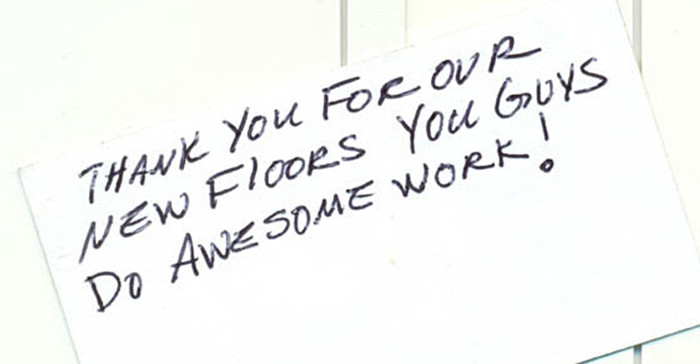 THANK YOU FOR OUR
NEW FlOORS YOU GUYS
DO AWESOME WORK!